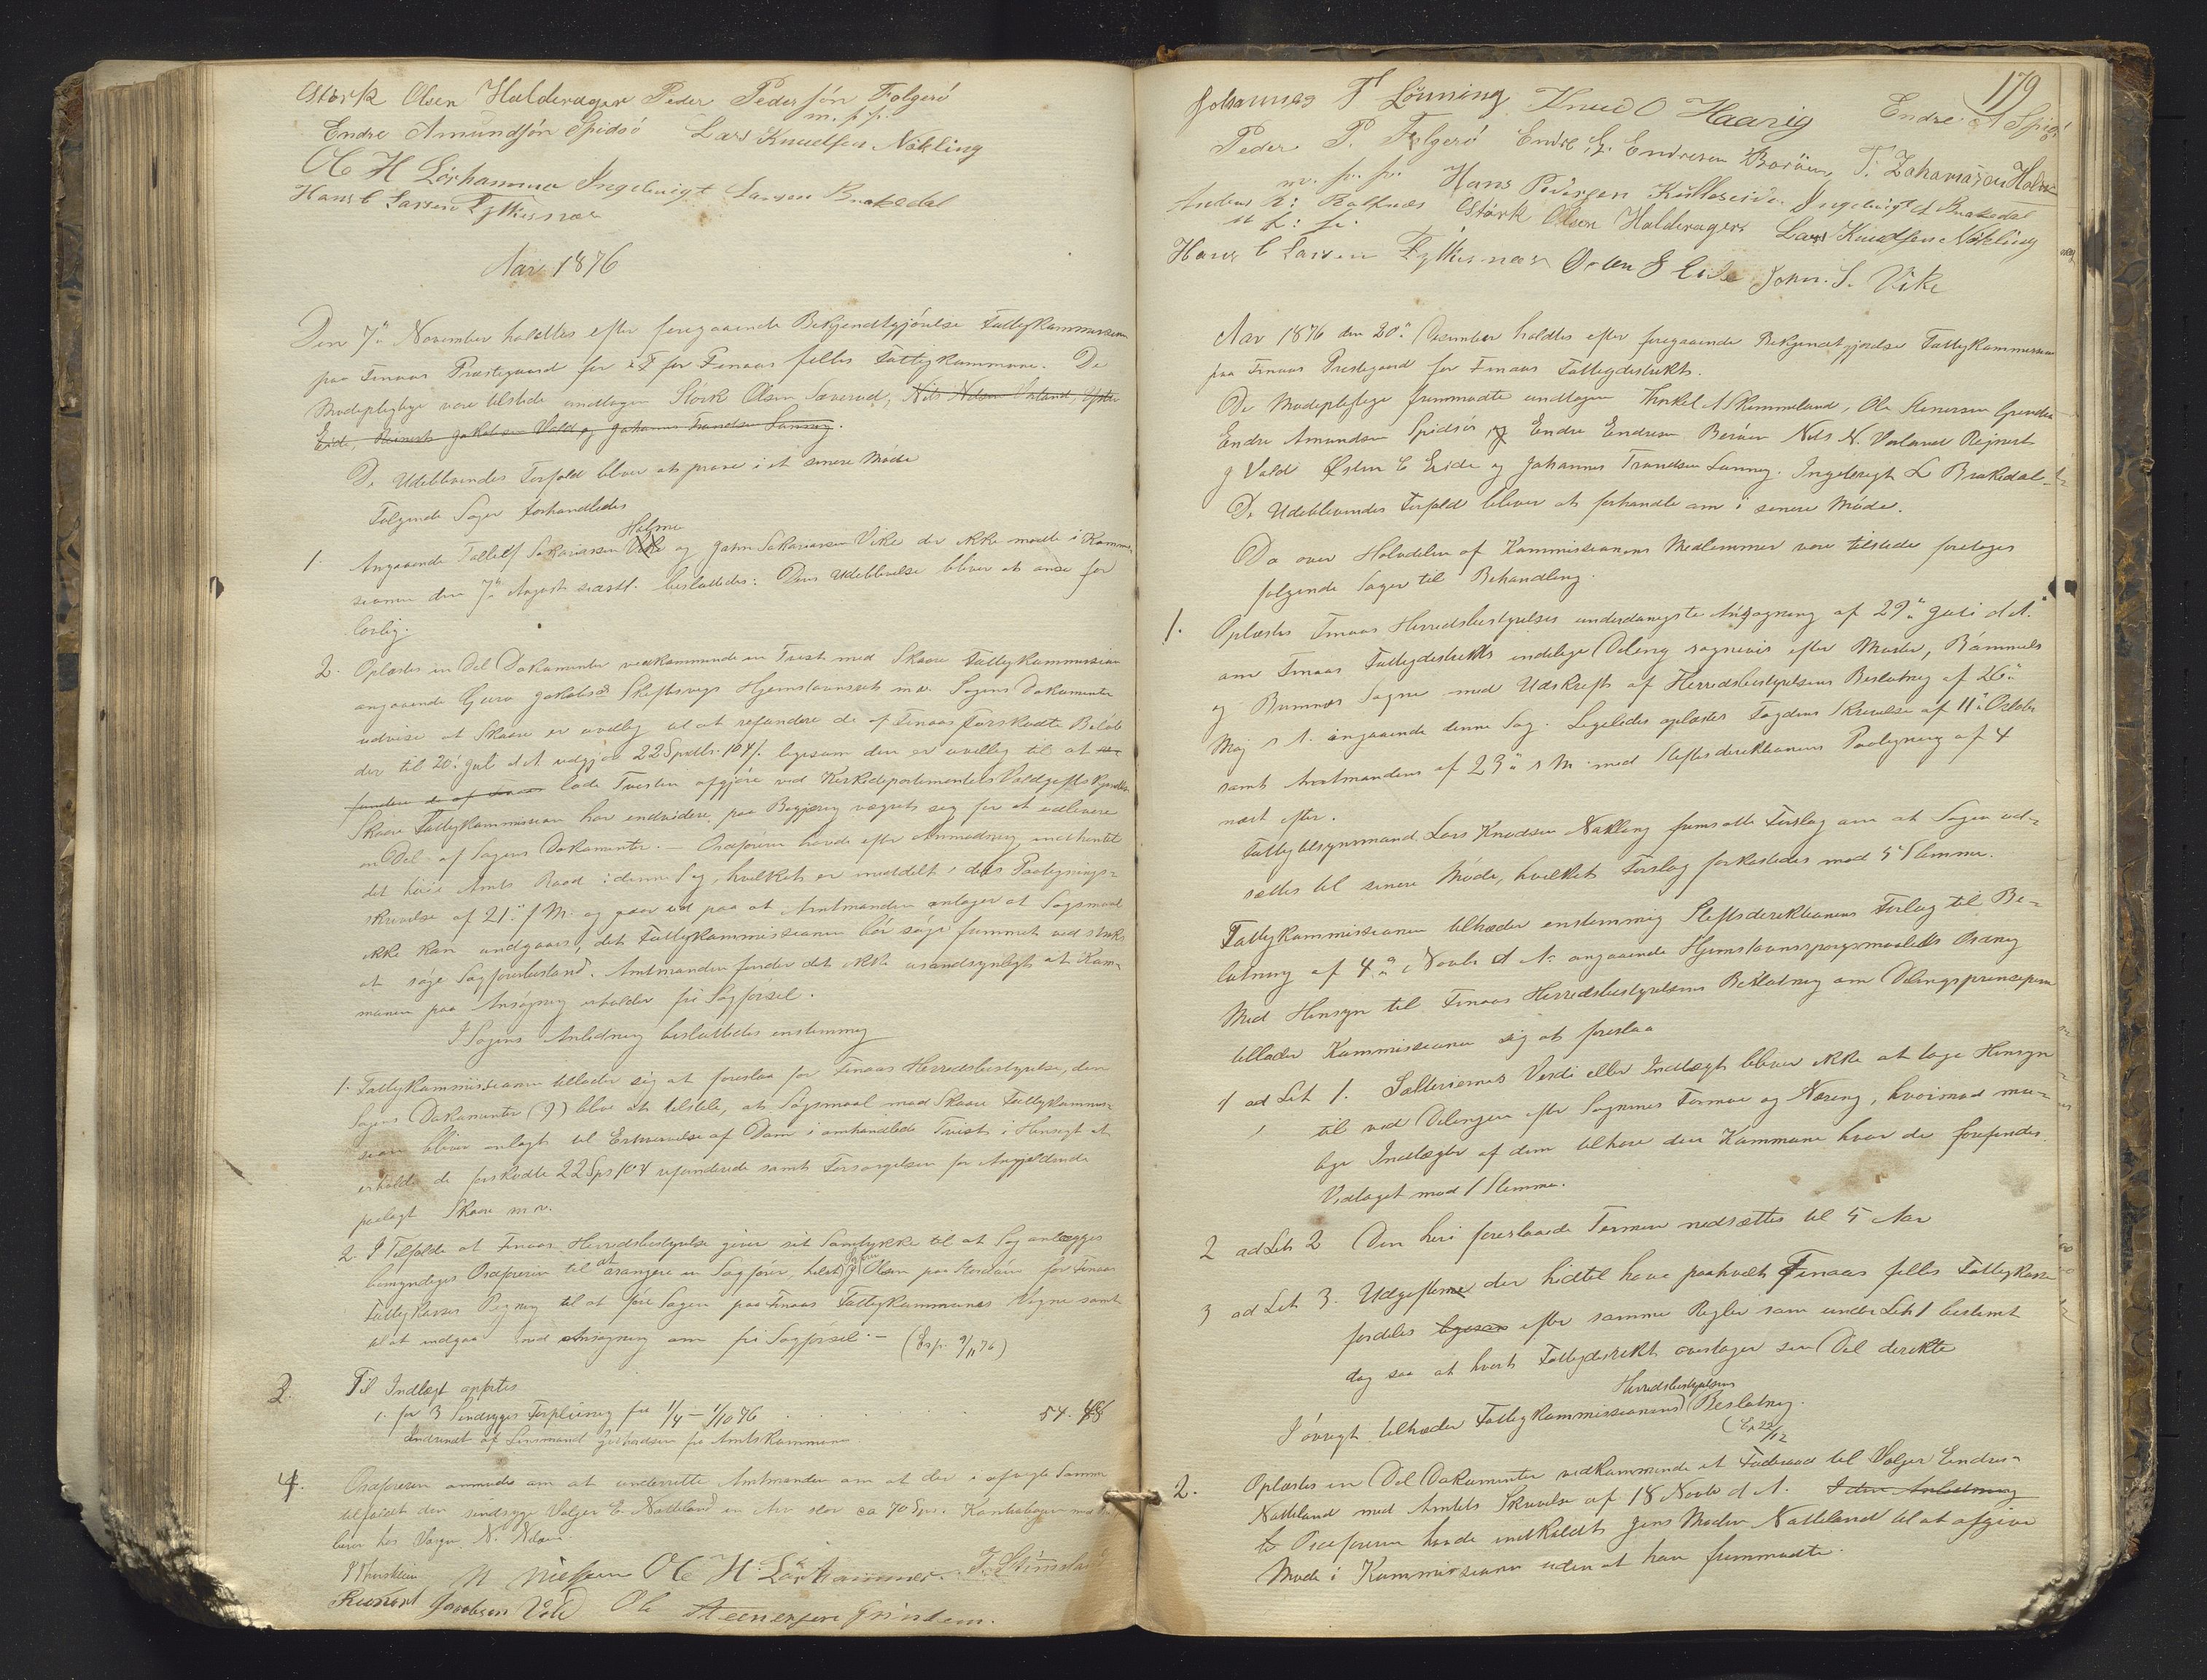 Størk Olsen Halderager Peder Pedersön Folgerö
m. p. p.
Endre Amundsön Spidsö Lars Knudsen Nökling
Ole H Lörhammer Ingebrigt Larsen Brakedal
Hans C Larsen Fylkesnæs
Aar 1876
Den 7de November holdtes efter foregaaende Bekjendtgjörelse Fattigkommission
paa Finaas Præstegaard for Finaas felles Fattigkommune. De
Mödepligtige vare tilstede undtagen Störk Olsen Sæverud, Nils Nilsen Vorland, Östen
Eide, Reinert Jakobsen Vold og Johannes Trondsen Lönning.
De Udeblivendes Forfald bliver at prøve i et senere Møde
Følgende Sager forhandledes
1. Angaaende Tollef Sakariassen Vike Holme og John Sakariassen Vike der ikke mødte i Kommis-
sionen den 7de August sidstl. besluttedes: Deres Udeblivelse bliver at anse for
lovlig.
2. Oplæstes en Del Dokumenter vedkommende en Tvist med Skaare Fattigkommission
angaaende Guro Jakobsd Skeftsvigs Hjemstavnsret m.v. Sagens Dokumenter
udvise at Skaare er uvillig til at refundere de af Finaas forskudte Beløb
der til 20. Juli d A udgjör 22 Spdlr. 104 s. ligesom den er uvillig til at re-
fundere de af Finaas lade Tvisten afgjöre ved Kirkedepartementets Voldgiftskjendelse
Skaare Fattigkommission har endvidere paa Begjæring vægret sig for at udlevere
en Del af Sagens Dokumenter. – Ordføreren havde efter Anmodning indhentet
det höie Amts Raad i denne Sag, hvilket er meddelt i dets Paategnings-
skrivelse af 21. f M. og gaar ud paa at Amtmanden antager at Søgsmaal
ikke kan undgaaes, det Fattigkommissionen bör söge fremmet ved straks
at søge Sagförerbistand. Amtmanden finder det ikke usandsynligt at Kom-
munen paa Ansögning erholder fri Sagførsel.
I Sagens Anledning besluttedes enstemmig
1. Fattigkommissionen tillader sig at foreslaa for Finaas Herredsbestyrelse, den
Sagens Dokumenter (9) blive at tilstile, at Sögsmaal mod Skaare Fattigkommis-
sion bliver anlagt til Erhvervelse af Dom i omhandlede Tvist i Hensigt at
erholde de forskudte 22 Sp 104 refunderede samt Forsørgelsen for Angjældende
paalagt Skaare m.v.
2. I Tilfælde at Finaas Herredsbestyrelse giver sit Samtykke til at Sag anlægges
bemyndiges Ordføreren til at arangere en Sagförer, helst Olsen paa Stordöen for Finaas
Fattigkasses Regning til at före Sagen paa Finaas Fattigkommunes Vegne samt
til at indgaa med Ansøgning om fri Sagförsel. – (Exp. 9/11 76)
3. Til Indtægt anførtes
1. for 3 Sindssyges Forpleining fra 1/4 – 1/10 76 . . . . 54. 48
Indsendt af Lensmand fra Amtskommunen
4. Ordføreren anmodes om at underrette Amtmanden om at der i afvigte Sommer
tilfaldt den sindssyge Valgjer E. Natteland en Arv stor ca 70 Spd. Kontrabogen
beror hos Værgen N. Nilsen
N Nielsen Ole H. Lörhammer.
Reinert Jacobsen Vold Ole Steenersen Grindem.
179
Johannes T Lönning Knud O Haavig Endre A Spidsö
Peder P. Folgerö Endre E. Endresen Boröen T. Zakariasen Holme
m. p. p. Hans Pedersen Kulleseide Ingebrigt L Brakedal
Størk Olsen Halderager Lars Knudsen Nökling
Hans C Larsen Fylkesnæs Østen E Eide John. S. Vike
Aar 1876 den 20de December holdtes efter foregaaende Bekjendtgjørelse Fattigkommission
paa Finaas Prestegaard for Finaas Fattigdistrikt.
De Mødepligtige fremmødte undtagen Thorkel A Skimmeland, Ole Stenersen Grinden
Endre Amundsen Spidsöi og Endre Endresen Boröen Nils N. Vorland Reinert
J Vold Østen E Eide og Johannes Trondsen Lønning. Ingebregt L Brakedal.
De Udeblivendes Forfald bliver at forhandle om i senere Møde.
Da over Halvdelen af Kommissionens Medlemmer vare tilstede foretoges
følgende Sager til Behandling.
1. Oplæstes Finaas Herredsbestyrelses underdanigste Ansøgning af 29de Juli d A.
om Finaas Fattigdistrikts endelige Deling sognevis efter Moster, Bømmels
og Bremnæs Sogne med Udskrift af Herredsbestyrelsens Beslutning af 26de
Maj s A. angaaende denne Sag. Ligeledes oplæstes Fogdens Skrivelse af 11te October
samt Amtmandens af 23de s M. med Stiftsdirektionens Paategning af 4
næst efter.
Fattigtilsynsmand Lars Knudsen Nøkling fremsatte Forslag om at Sagen ud-
sættes til senere Møde, hvilket Forslag forkastedes mod 5 Stemmer.
Fattigkommissionen tiltræder enstemmig Stiftsdirektionens Forslag til Be-
slutning af 4de Novbr d A. angaaende Hjemstavnsspørgsmaalets Ordning
Med Hensyn til Finaas Herredsbestyrelsens Beslutning om Delingsprincipen
tillader Kommissionen sig at foreslaa
1 ad Lit 1. Salteriernes Verdi eller Indtægt bliver ikke at tage Hensyn
til ved Delingen efter Sognenes Formue og Næring, hvorimod mu-
lige Indtægter af dem tilhøre den Kommune hvor de forefindes.
Vedtaget mod 1 Stemme.
2 ad Lit 2 Den heri foreslaaede Termin nedsættes til 5 Aar
3 ad Lit 3. Udgifterne der hidtil have paahvilt Finaas felles Fattigkasse
fordeles ligesaa efter samme Regler som under Lit 1 bestemt
dog saa at hvert Fattigdistrikt overtager sin Del direkte
I øvrigt tiltræder Fattigkommissionen Herredsbestyrelsens Beslutning.
(Ex 22/12
2. Oplæstes en Del Dokumenter vedkommende et Föderaad til Valgjer Endres-
Natteland med Amtets Skrivelse af 18 Novbr d A. I den Anledning
Ordføreren havde indkaldt Jens Natteland til at afgive
Møde i Kommissionen uden at han fremmødte.